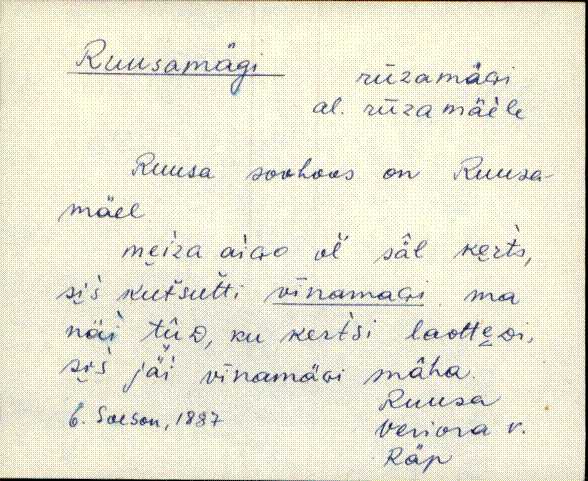 Ruusamägi
rūzamäɢi
al. rūzamäele
Ruusa sovhoos on Ruusa-
mäel
mẹiza aiɢo oĺĺ säl kẹrt̀s,
sis̀ kut̀sut̀ti vīnamäɢi ma
näi tūᴅ, ku kert̀si laottẹᴅi,
sis̀ jäi vīnamäɢi mäha.
E. Soeson, 1887
Ruusa
Veriora v.
Räp